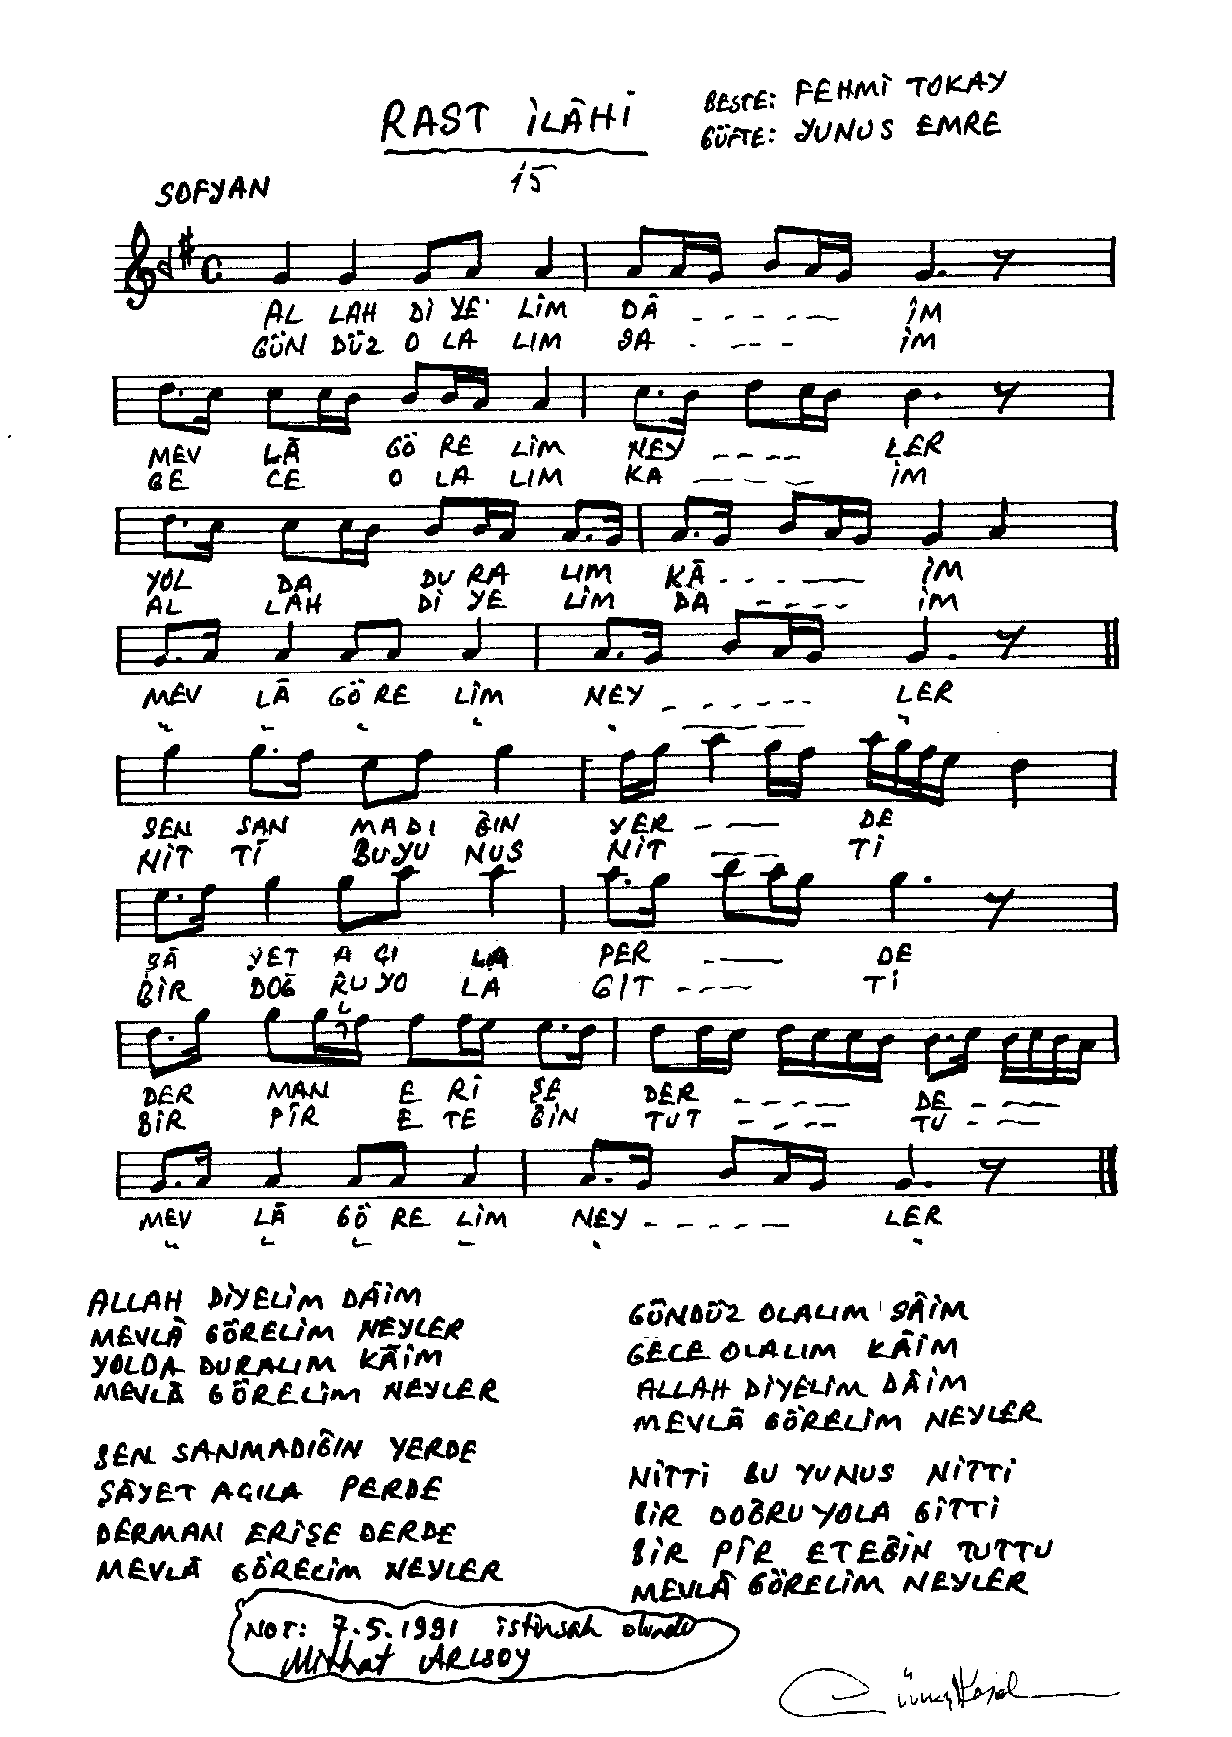 RAST İLÂHİ
BESTE: FEHMİ TOKAY
GÜFTE: YUNUS EMRE
15
SOFYAN
AL LAH Dİ YE LİM DÂ - - - - - İM
GÜN DÜZ O LA LIM SA - - - - İM
MEV LÂ GÖ RE LİM NEY - - - - LER
GE CE O LA LIM KA - - - - İM
YOL DA DU RA LIM KÂ - - - - İM
AL LAH Dİ YE LİM DA - - - - İM
MEV LÂ GÖ RE LİM NEY - - - - - - LER
SEN SAN MA DI ĞIN YER - - DE
NİT Tİ BU YU NUS NİT - - Tİ
ŞÂ YET A ÇI LA PER - - - DE
BİR DOĞ RU YO LA GİT - - - - Tİ
DER MAN E Rİ ŞE DER - - - - - DE - - -
BİR PÎR E TE ĞİN TUT - - - - TU - - -
MEV LÂ GÖ RE LİM NEY - - - - - LER
ALLAH DİYELİM DÂİM
MEVLÂ GÖRELİM NEYLER
YOLDA DURALIM KÂİM
MEVLÂ GÖRELİM NEYLER
SEN SANMADIĞIN YERDE
ŞÂYET AÇILA PERDE
DERMAN ERİŞE DERDE
MEVLÂ GÖRELİM NEYLER
GÜNDÜZ OLALIM SÂİM
GECE OLALIM KÂİM
ALLAH DİYELİM DÂİM
MEVLÂ GÖRELİM NEYLER
NİTTİ BU YUNUS NİTTİ
BİR DOĞRU YOLA GİTTİ
BİR PÎR ETEĞİN TUTTU
MEVLÂ GÖRELİM NEYLER
NOT: 7.5.1991 istinsah olundu
Mithat ARISOY